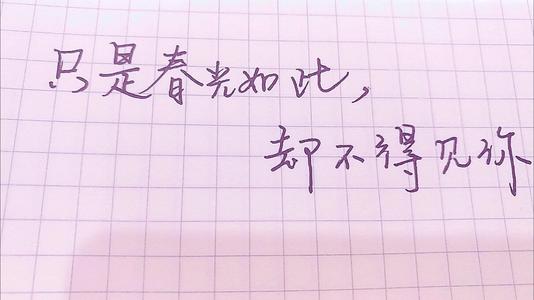 只是春光如此，
却不得见你